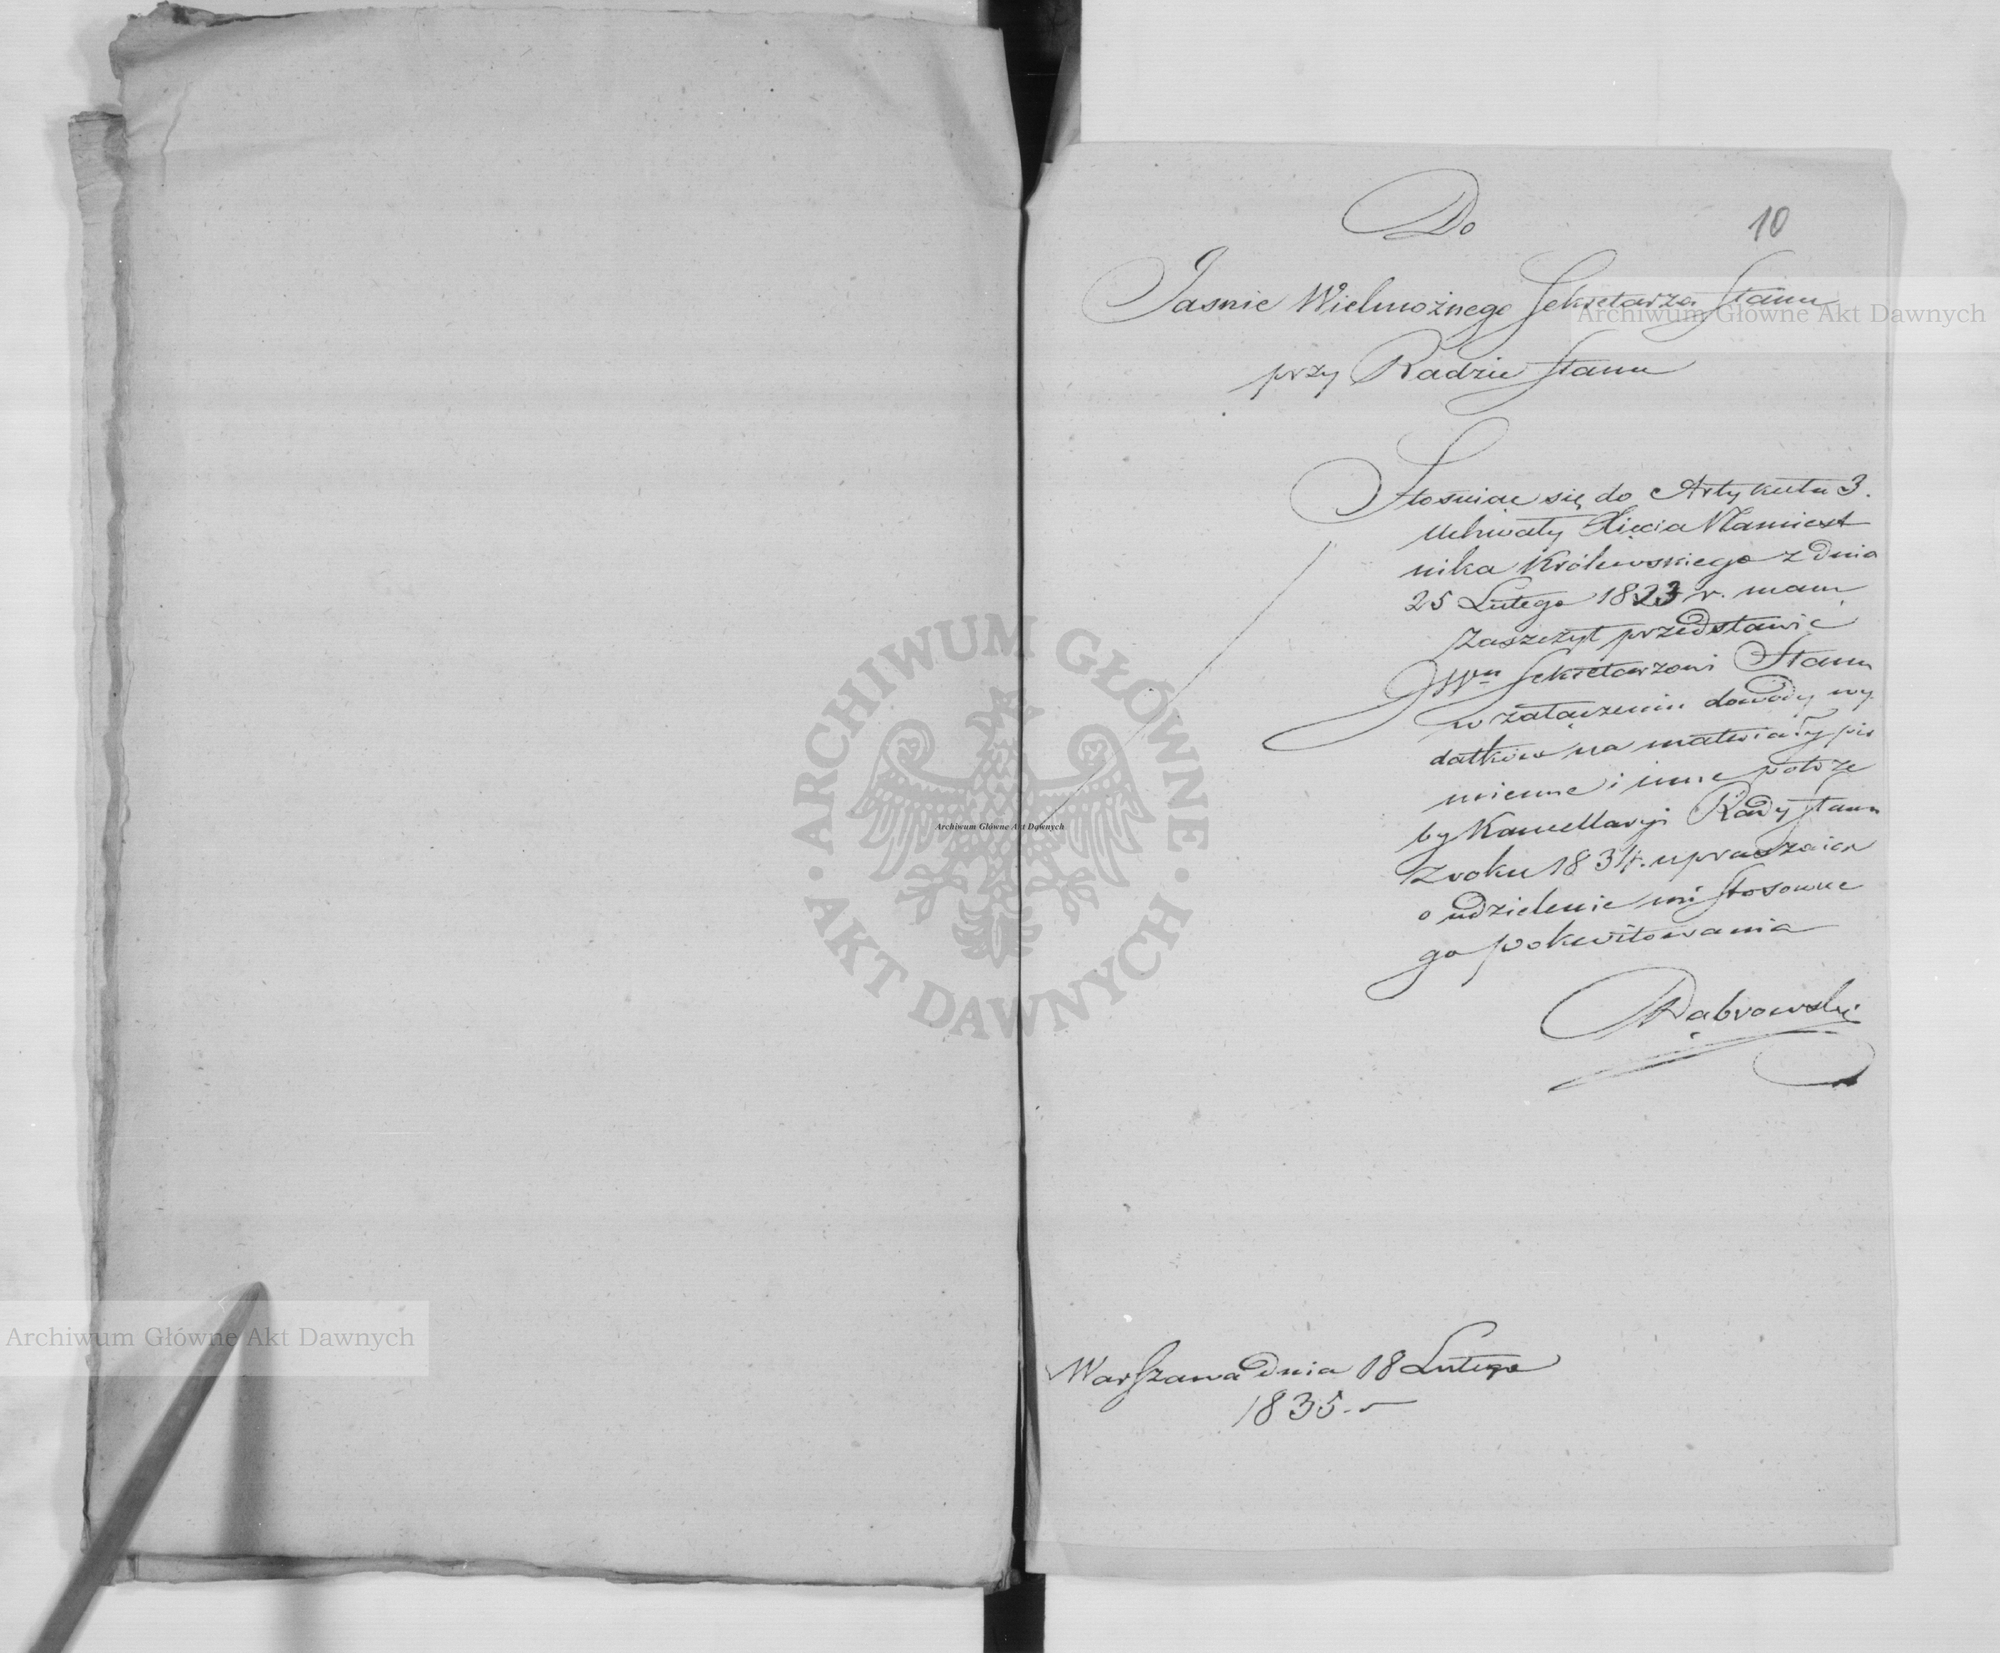 10
Do
Jasnie Wielmożnego Sekretarza Stanu
przy Radzie Stanu
Stosuiąc się do Artykułu 3.
Uchwały Xięcia Namiest
nika Królewskiego z dnia
25 Lutego 1823 r. mam
zaszczyt przedstawić
JWmu Sekretarzowi Stanu
w załączeniu dowody wy
datków na materiały piś
mienne i inne potrze
by Kancellaryi Rady Stanu
z roku 1834. upraszaiąc
o udzielenie mi stosowne
go pokwitowania
Dąbrowski
Warszawa dnia 18 Lutego
1835.
Archiwum Główne Akt Dawnych
Archiwum Główne Akt Dawnych
Archiwum Główne Akt Dawnych
ARCHIWUM GŁÓWNE
AKT DAWNYCH